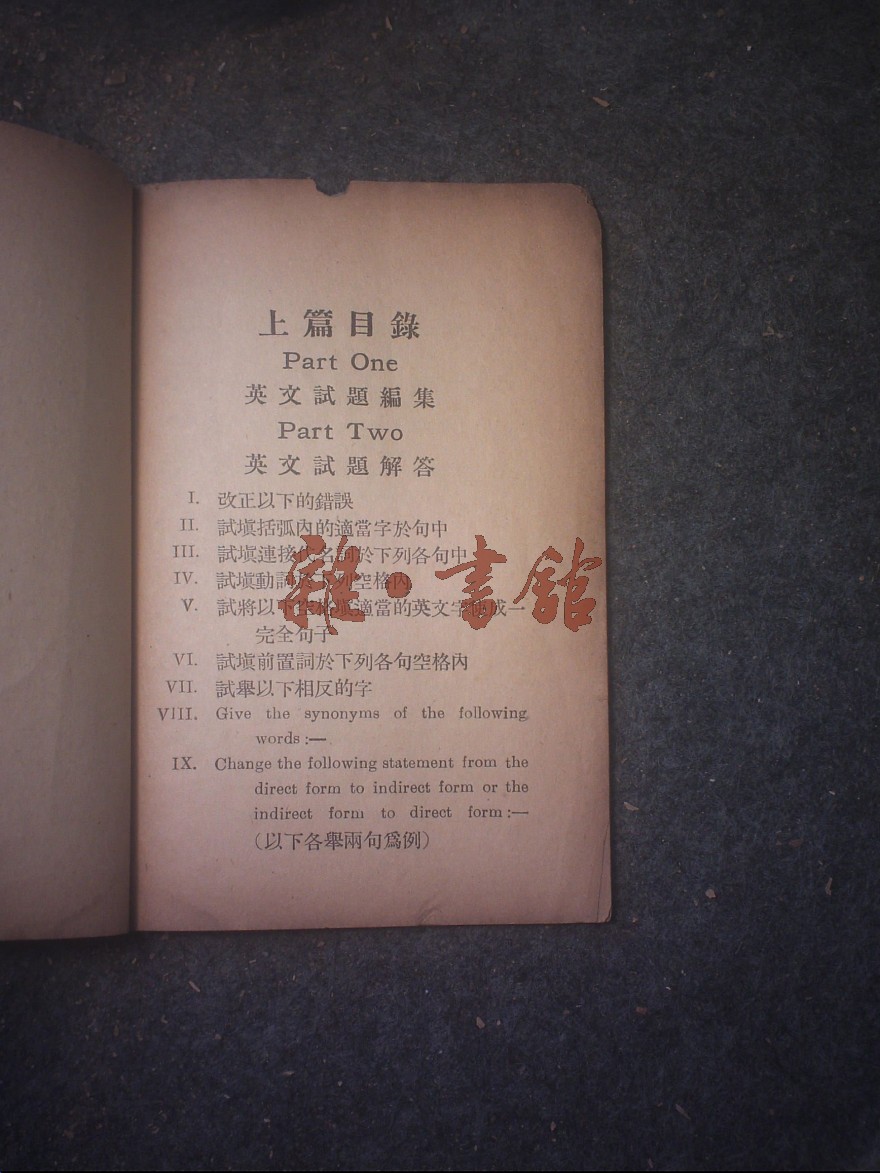 上篇目錄
Part One
英文試題編集
Part Two
英文試題解答
I. 改正以下的錯誤
II. 試塡括弧內的適當字於句中
III. 試塡連接代名詞於下列各句中
IV. 試塡動詞於下列空格內
V. 試將以下空格塡適當的英文字使成一
完全句子
VI. 試塡前置詞於下列各句空格內
VII. 試舉以下相反的字
VIII. Give the synonyms of the following
words :—
IX. Change the following statement from the
direct form to indirect form or the
indirect form to direct form :—
(以下各舉兩句爲例)
雜·書館